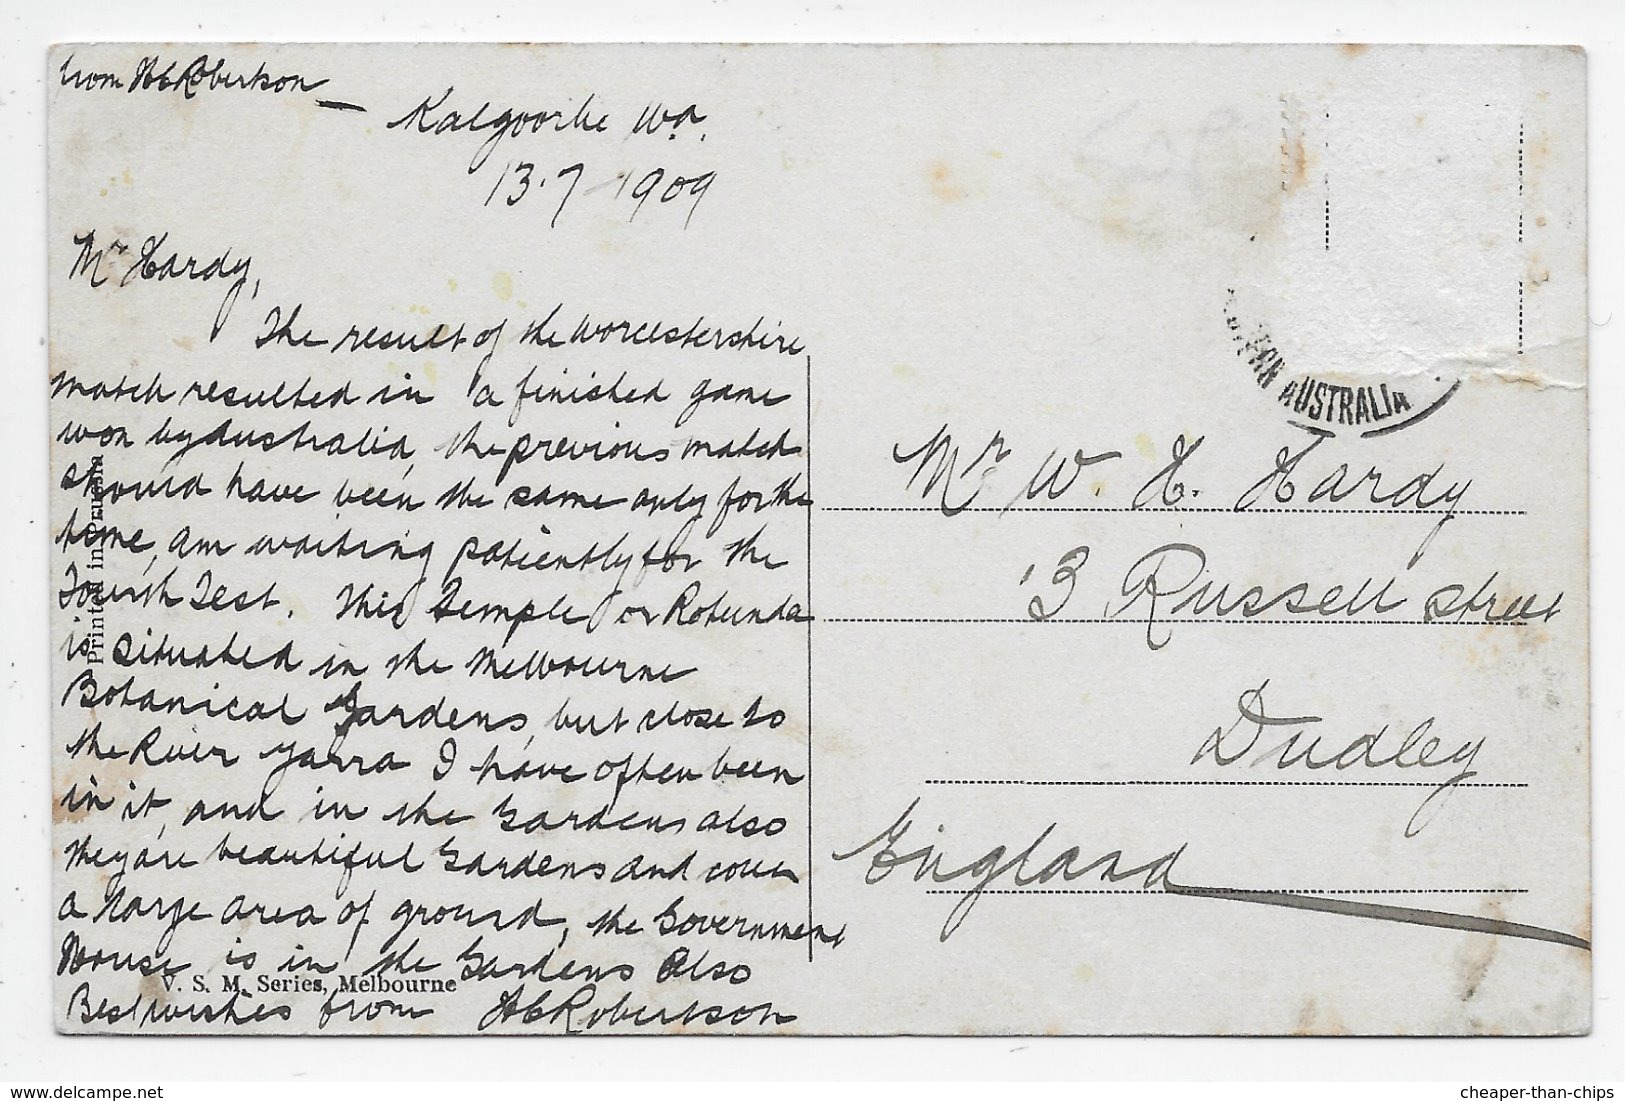 from H C Robertson
Kalgoorlie W.a.
13.7 1909
Mr Hardy,
The result of the Worcestershire
match resulted in a finished game
won by Australia, the previous match
should have been the same only for the
time, am waiting patiently for the
Fourth Test. This Temple or Rotunda
is situated in the Melbourne
Botanical Gardens, but close to
the River Yarra I have often been
in it, and in the Gardens also
they are beautiful Gardens and cover
a large area of ground, the Government
House is in the Gardens also
Best wishes from H C Robertson
Printed in Prussia
V. S. M. Series, Melbourne
AUSTRALIA
Mr W. H. Hardy
13 Russell Street
Dudley
England
cheaper-than-chips